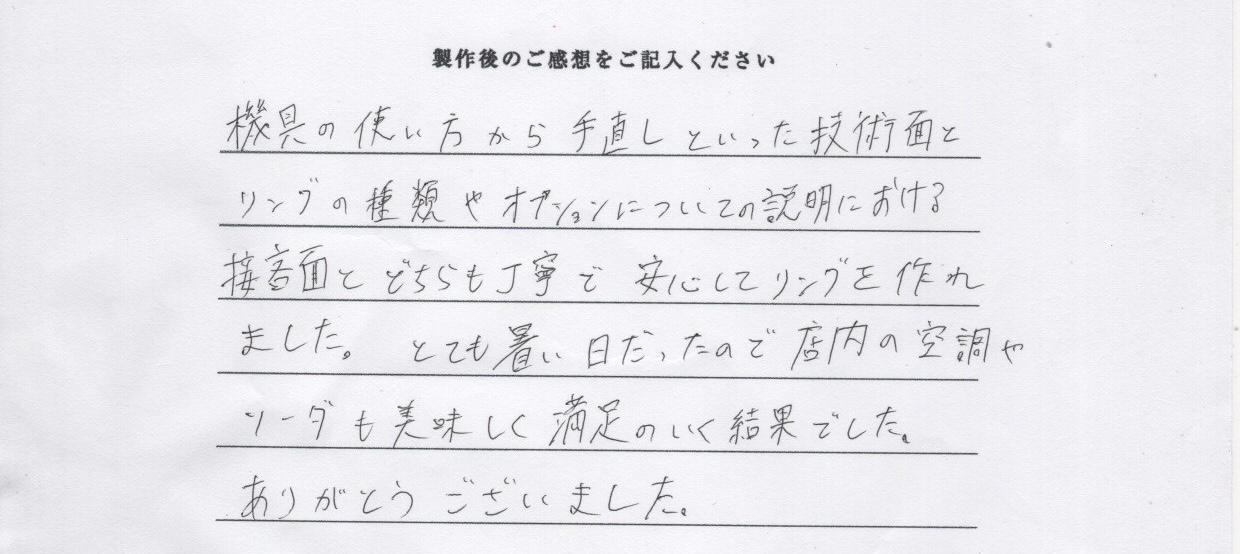 製作後のご感想をご記入ください
機具の使い方から手直しといった技術面と
リングの種類やオプションについての説明における
接客面とどちらも丁寧で安心してリングを作れ
ました。とても暑い日だったので店内の空調や
ソーダも美味しく満足のいく結果でした。
ありがとうございました。